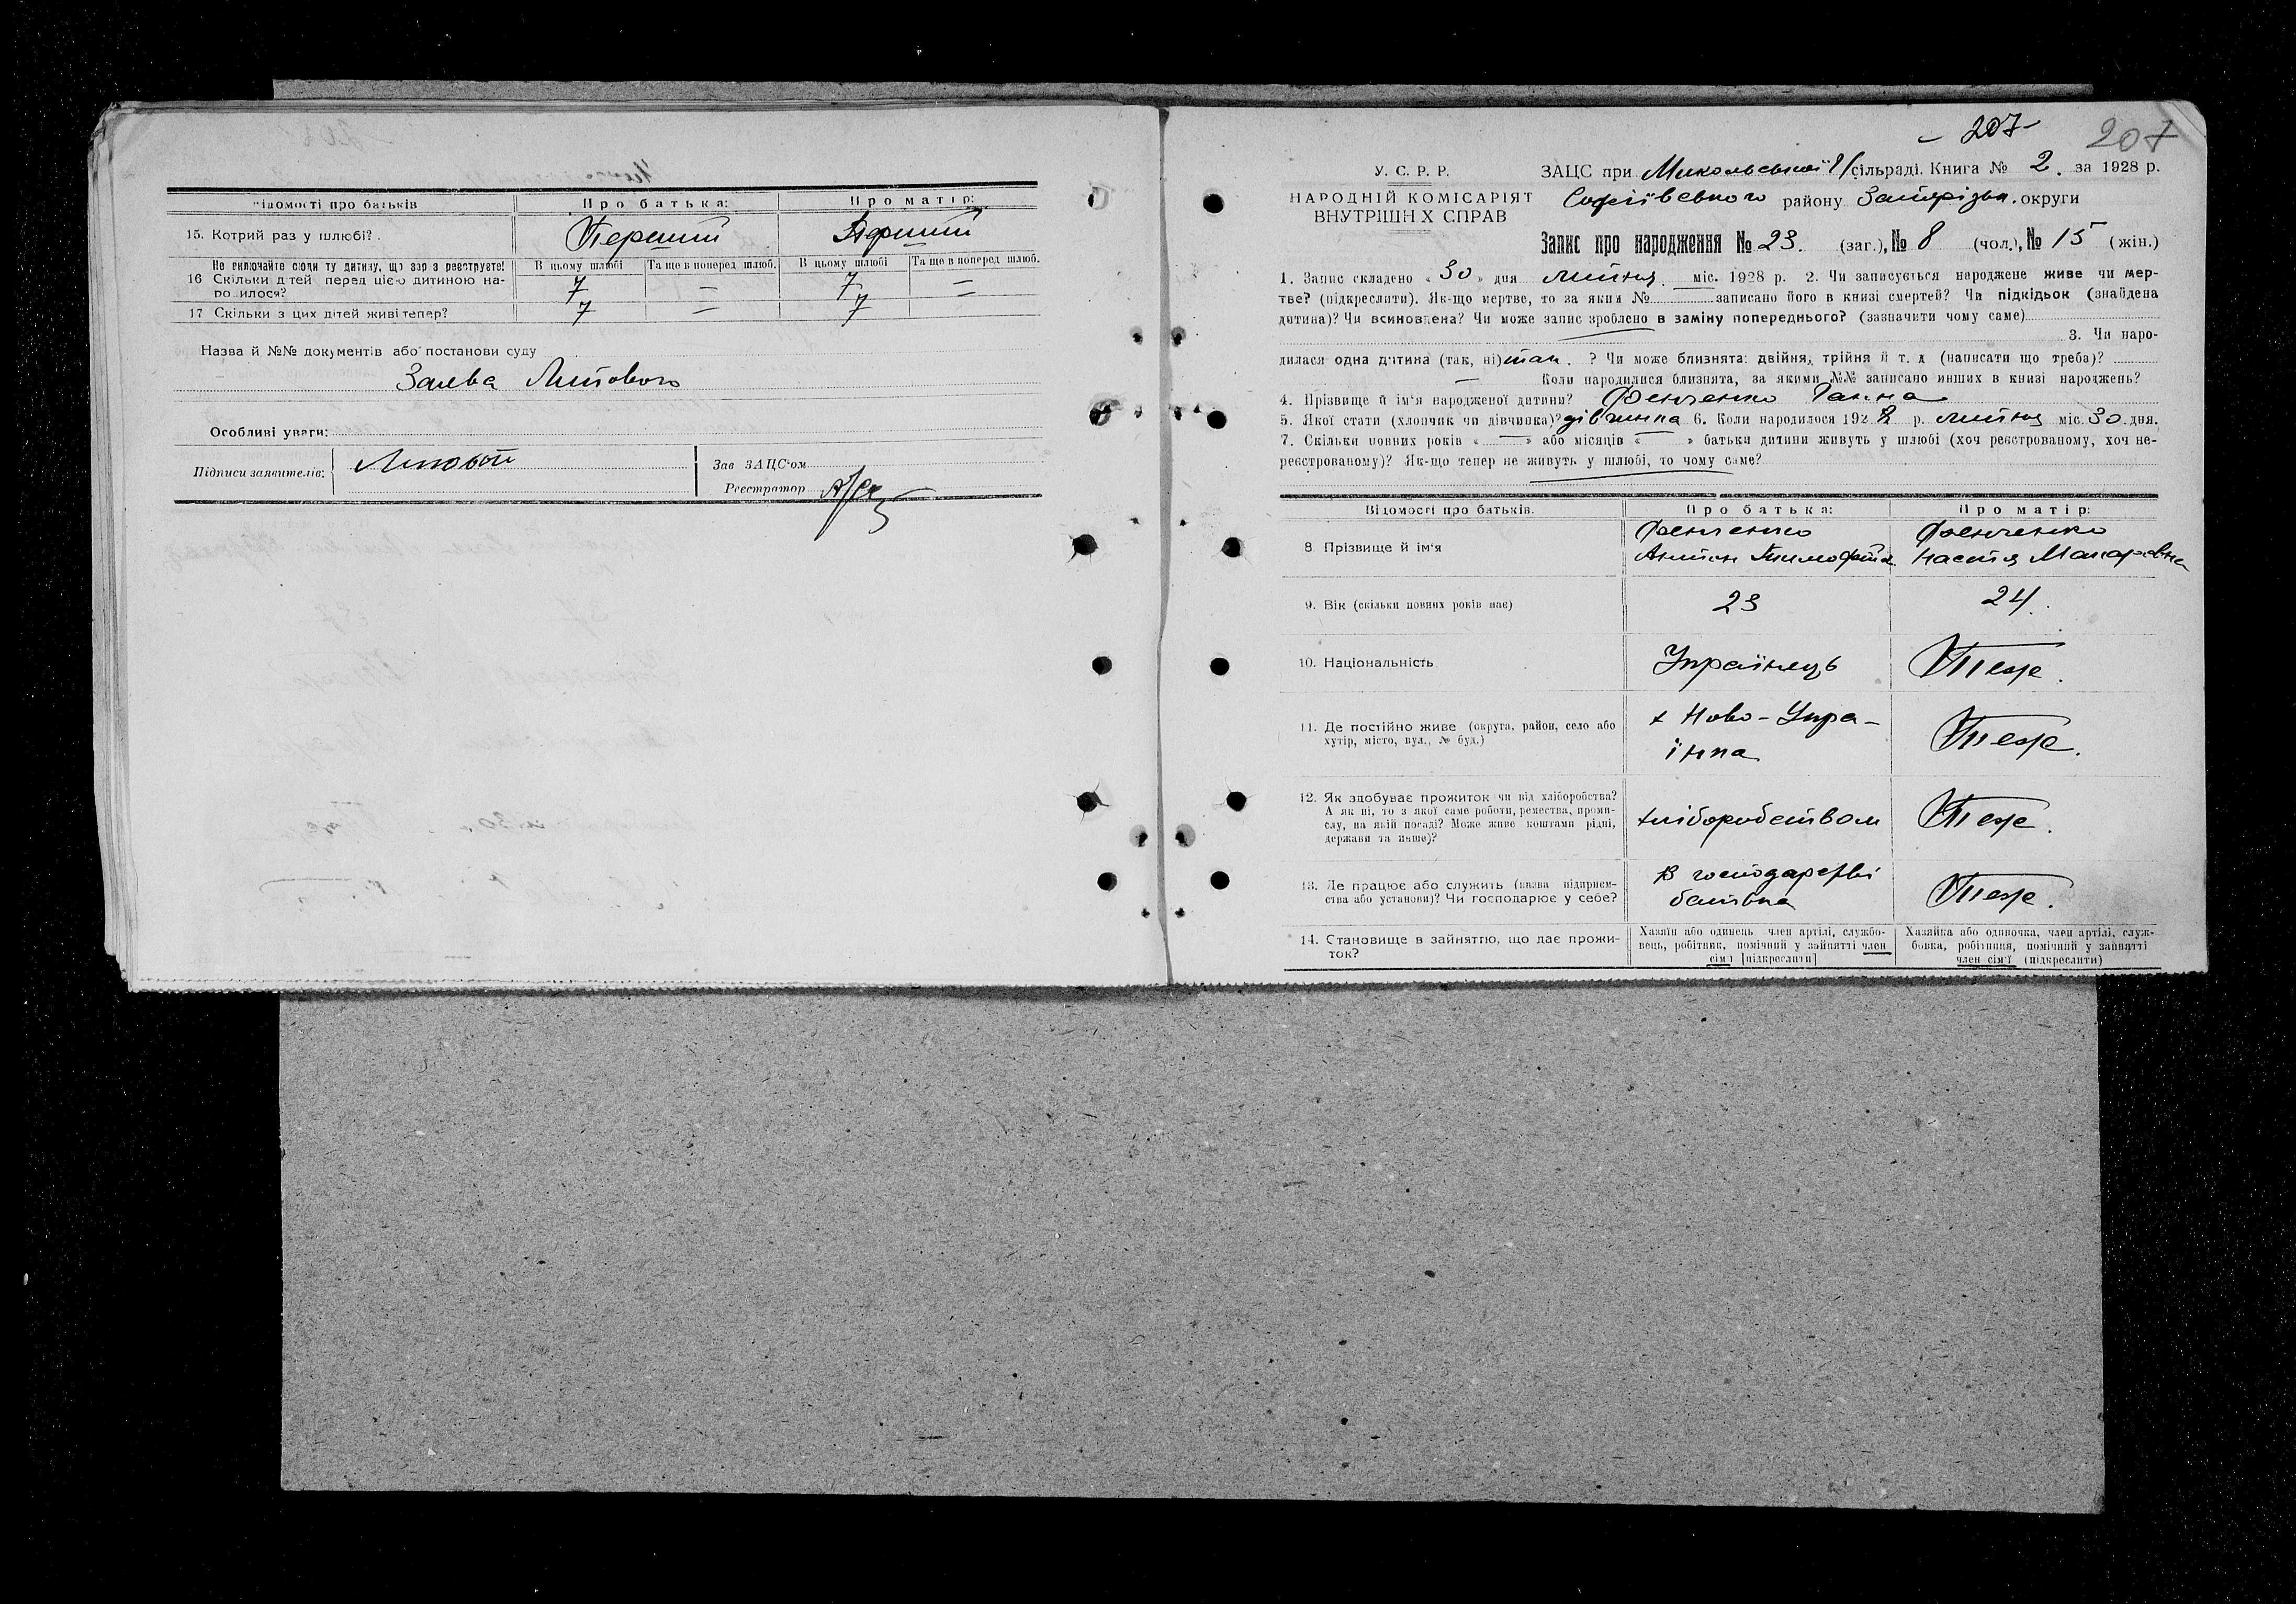 Відомості про батьків
Про батька:
Про матір:
15. Котрий раз у шлюбі?
Перший
Перший
Не включайте сюди ту дитину, що зар з реєструєте!
16 Скільки дітей перед цією дитиною на-
родилося?
В цьому шлюбі
Та ще в поперед. шлюб.
В цьому шлюбі
Та ще в поперед. шлюб.
7 — 7 —
17 Скільки з цих дітей живі тепер?
7 — 7 —
Назва й №№ документів або постанови суду
Заява Липового
Особливі уваги:
Підписи заявителів:
Липовый
Зав ЗАЦС'ом
Реєстратор
- 207 -
207
У. С. Р. Р.
НАРОДНІЙ КОМІСАРІЯТ
ВНУТРІШН Х СПРАВ
ЗАЦС при Микольській сільраді. Книга № 2. за 1928 р.
Софіївського району Запорізьк. округи
Запис про народження № 23. (заг.), № 8 (чол.), № 15 (жін.)
1. Запис складено « 30 » дня липня міс. 1928 р. 2. Чи записується народжене живе чи мер-
тве? (підкреслити). Як-що мертве, то за яким № записано його в книзі смертей? Чи підкідьок (знайдена
дитина)? Чи всиновлена? Чи може запис зроблено в заміну попереднього? (зазначити чому саме)
3. Чи наро-
дилася одна дитина (так, ні) так. ? Чи може близнята: двійня, трійня й т. д (написати що треба)?
— Коли народилися близнята, за якими №№ записано инших в книзі народжень?
4. Прізвище й ім'я народженої дитини? Фенченко Ганна
5. Якої стати (хлопчик чи дівчинка)? дівчинка 6. Коли народилося 1928 р. липня міс. 30 дня.
7. Скільки повних років « — » або місяців « — » батьки дитини живуть у шлюбі (хоч реєстрованому, хоч не-
реєстрованому)? Як-що тепер не живуть у шлюбі, то чому саме?
Відомості про батьків.
Про батька:
Про матір:
8. Прізвище й ім'я
Фенченко
Антон Тимофейов.
Фенченко
Настя Макаровна
9. Вік (скільки повних років має)
23
24.
10. Національність
Українець
Теж.
11. Де постійно живе (округа, район, село або
хутір, місто, вул., № буд.)
х Ново-Укра-
їнка
Теж.
12. Як здобуває прожиток чи від хліборобства?
А як ні, то з якої саме роботи, ремества, проми-
слу, на якій посаді? Може живе коштами рідні,
держави та инше)?
хліборобством
Теж.
13. Де працює або служить (назва підприєм-
ства або установи)? Чи господарює у себе?
В господарстві
батька
Теж.
14. Становище в зайняттю, що дає прожи-
ток?
Хазяїн або одинець член артілі, службо-
вець, робітник, помічний у зайнятті член
сім'ї [підкреслити]
Хазяйка або одиночка, член артілі, служ-
бовка, робітниця, помічний у зайнятті
член сім'ї (підкреслити)